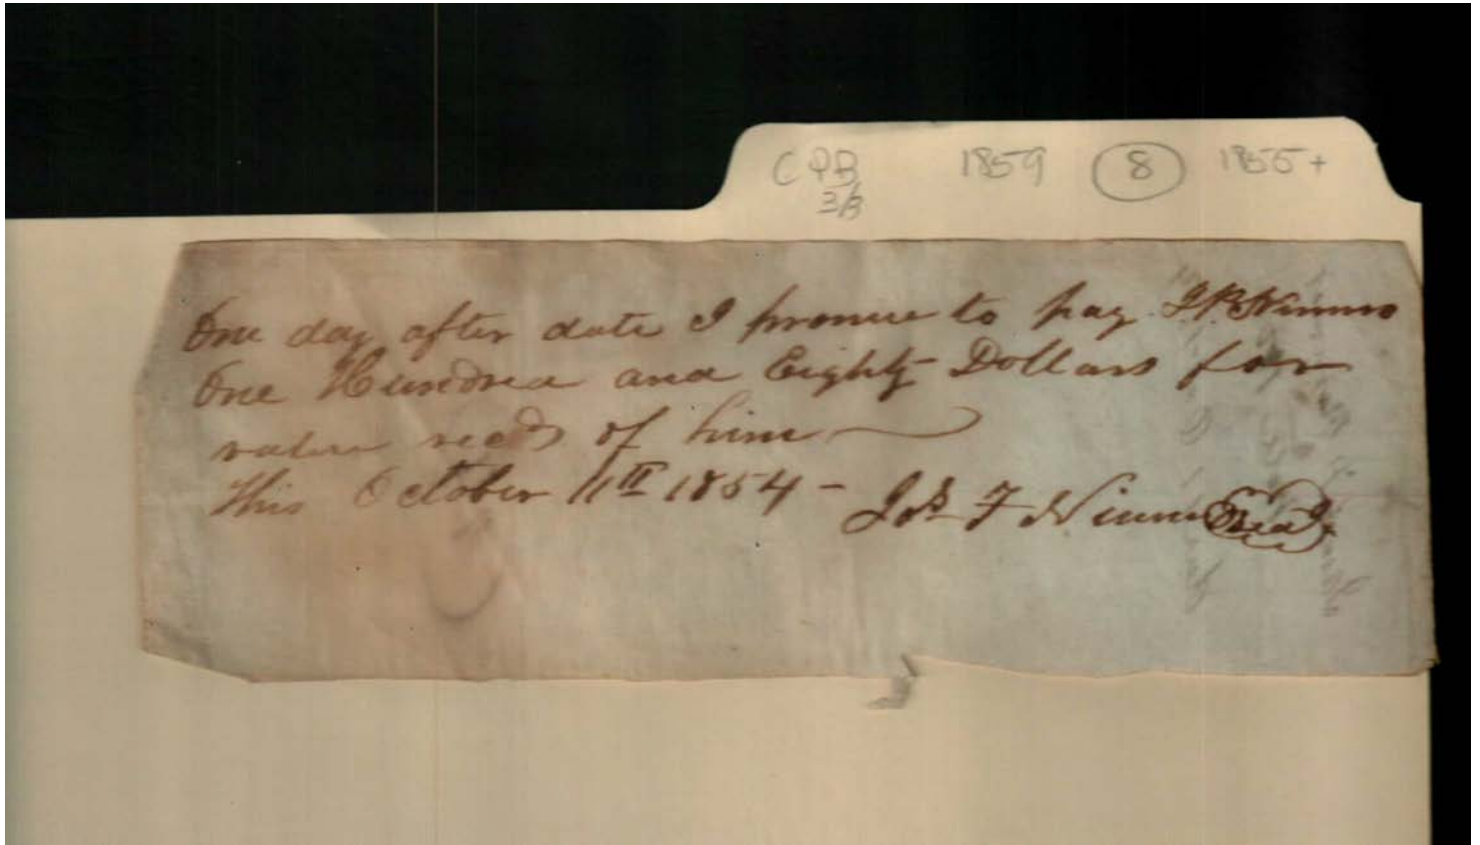 CPB 1859 8 1855+
3/3
One day after date I promise to pay J B Nimmo
One Hundred and Eighty Dollars for
value recd of him
This October 11th 1854 - Jos F Nimmo Seal